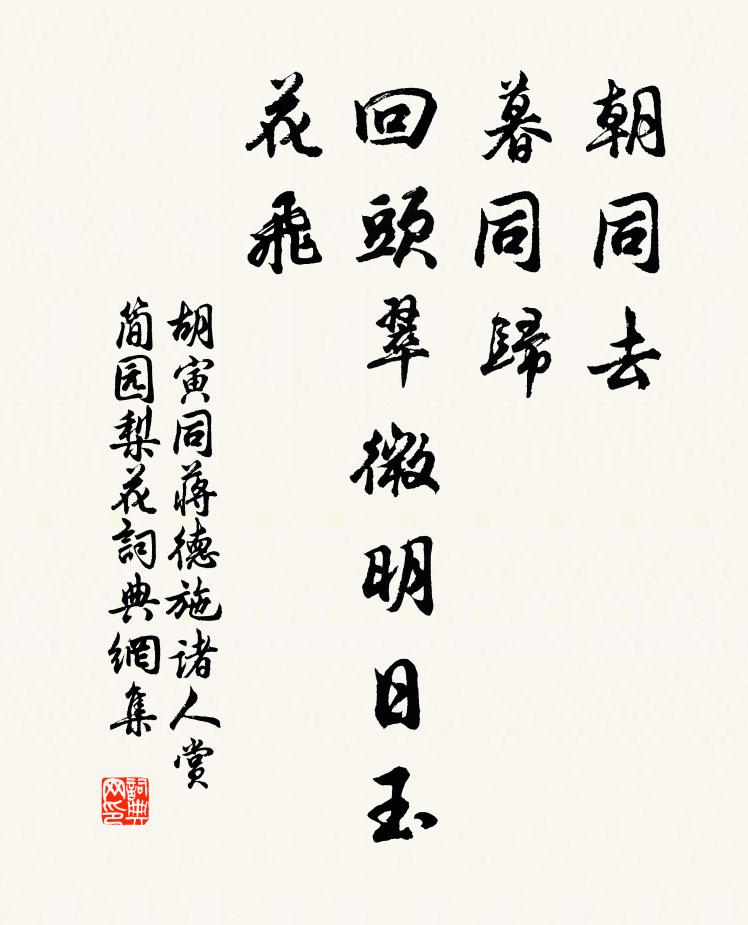 朝同去
暮同歸
回頭翠微明日玉
花飛
胡寅同蔣德施諸人賞
简园梨花詞典網集
詞典网印